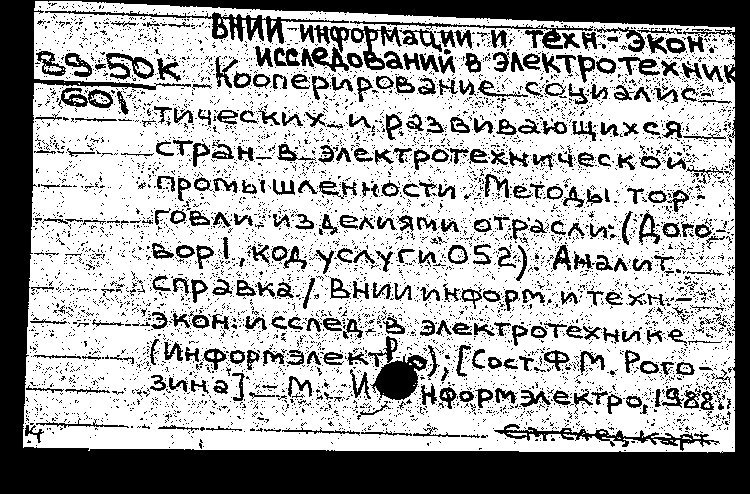 ВНИИ информации и техн.-экон.
исследований в электротехник
89-50К
601
Кооперирование социалис-
тических и развивающихся
стран в электротехнической
промышленности. Методы тор-
говли изделиями отрасли: (Дого-
вор 1, код услуги 052): Аналит.
справка / ВНИИ информ. и техн.-
экон. исслед. в электротехнике
(Информэлектро); [Сост. Ф.М. Рого-
зина]. - М.: Информэлектро, 1988.
См. след. карт.